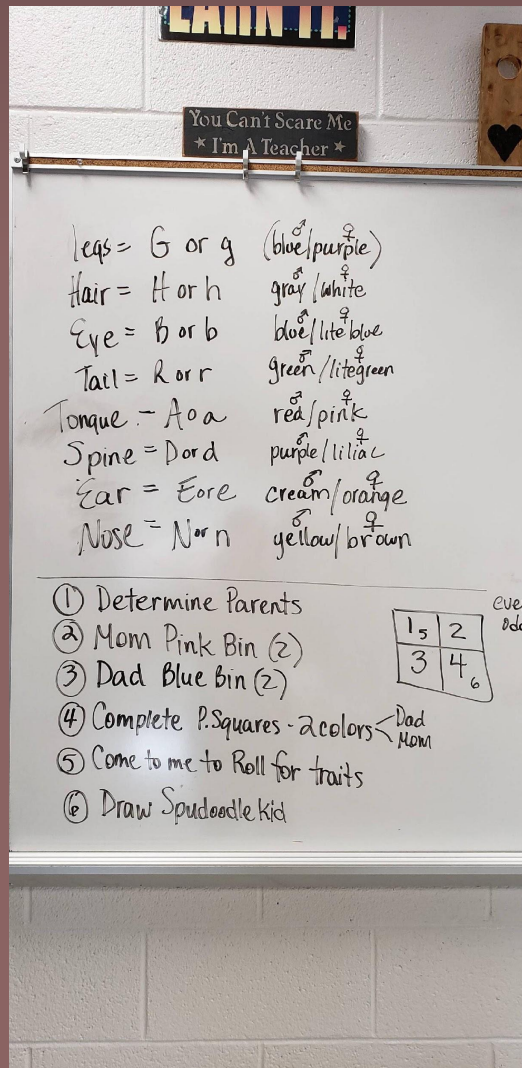 EARN IT.
You Can't Scare Me
* I'm A Teacher *
legs = G or g (blue/purple) ♂ ♀
Hair = H or h gray/white ♂ ♀
Eye = B or b blue/lite blue ♂ ♀
Tail = R or r green/litegreen ♂ ♀
Tongue - A o a red/pink ♂ ♀
Spine = D or d purple/liliac ♂ ♀
Ear = E or e cream/orange ♂ ♀
Nose = N or n yellow/brown ♂ ♀
① Determine Parents
② Mom Pink Bin (2)
③ Dad Blue Bin (2)
④ Complete P.Squares - 2 colors < Dad
Mom
⑤ Come to me to Roll for traits
⑥ Draw Spudoodle kid
1 5 2
3 4 6